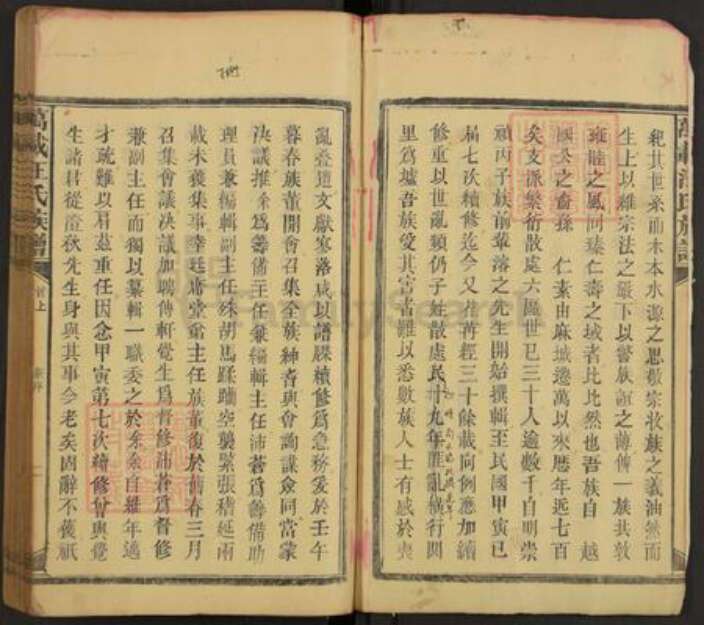 紀其世系而木本水源之思敬宗收族之義油然而
生上以維宗法之嚴下以警族誼之薄俾一族共敦
雍睦之風同臻仁壽之域者比比然也吾族自 越
國公之裔孫 仁素由麻城遷萬以來歷年近七百
矣支派繁衍散處六區世已三十人逾數千自明崇
禎丙子族前輩濬之先生開始撰輯至民國甲寅已
屆七次續修迄今又荏苒經三十餘載向例應加續
修重以世亂頻仍子姓散處民十九年匪亂橫行閭
里為墟吾族受其害者難以悉數族人士有感於喪
亂疊遭文獻寥落咸以譜牒續修為急務爰於壬午
暮春族董開會召集全族紳耆與會詢謀僉同當蒙
決議推余為籌備主任兼編輯主任沛蒼為籌備助
理員兼編輯副主任殊胡馬蹂躪空襲緊張稽延兩
載未獲集事幸廷席堂甯主任族董復於舊春三月
召集會議決議加聘傳軒覺生為督修沛蒼為督修
兼副主任而獨以纂輯一職委之於余余自維年邁
才疏難以肩茲重任因念甲寅第七次續修曾與覺
生諸君從澄秋先生身與其事今老矣固辭不獲祇
萬載汪氏族譜
首上